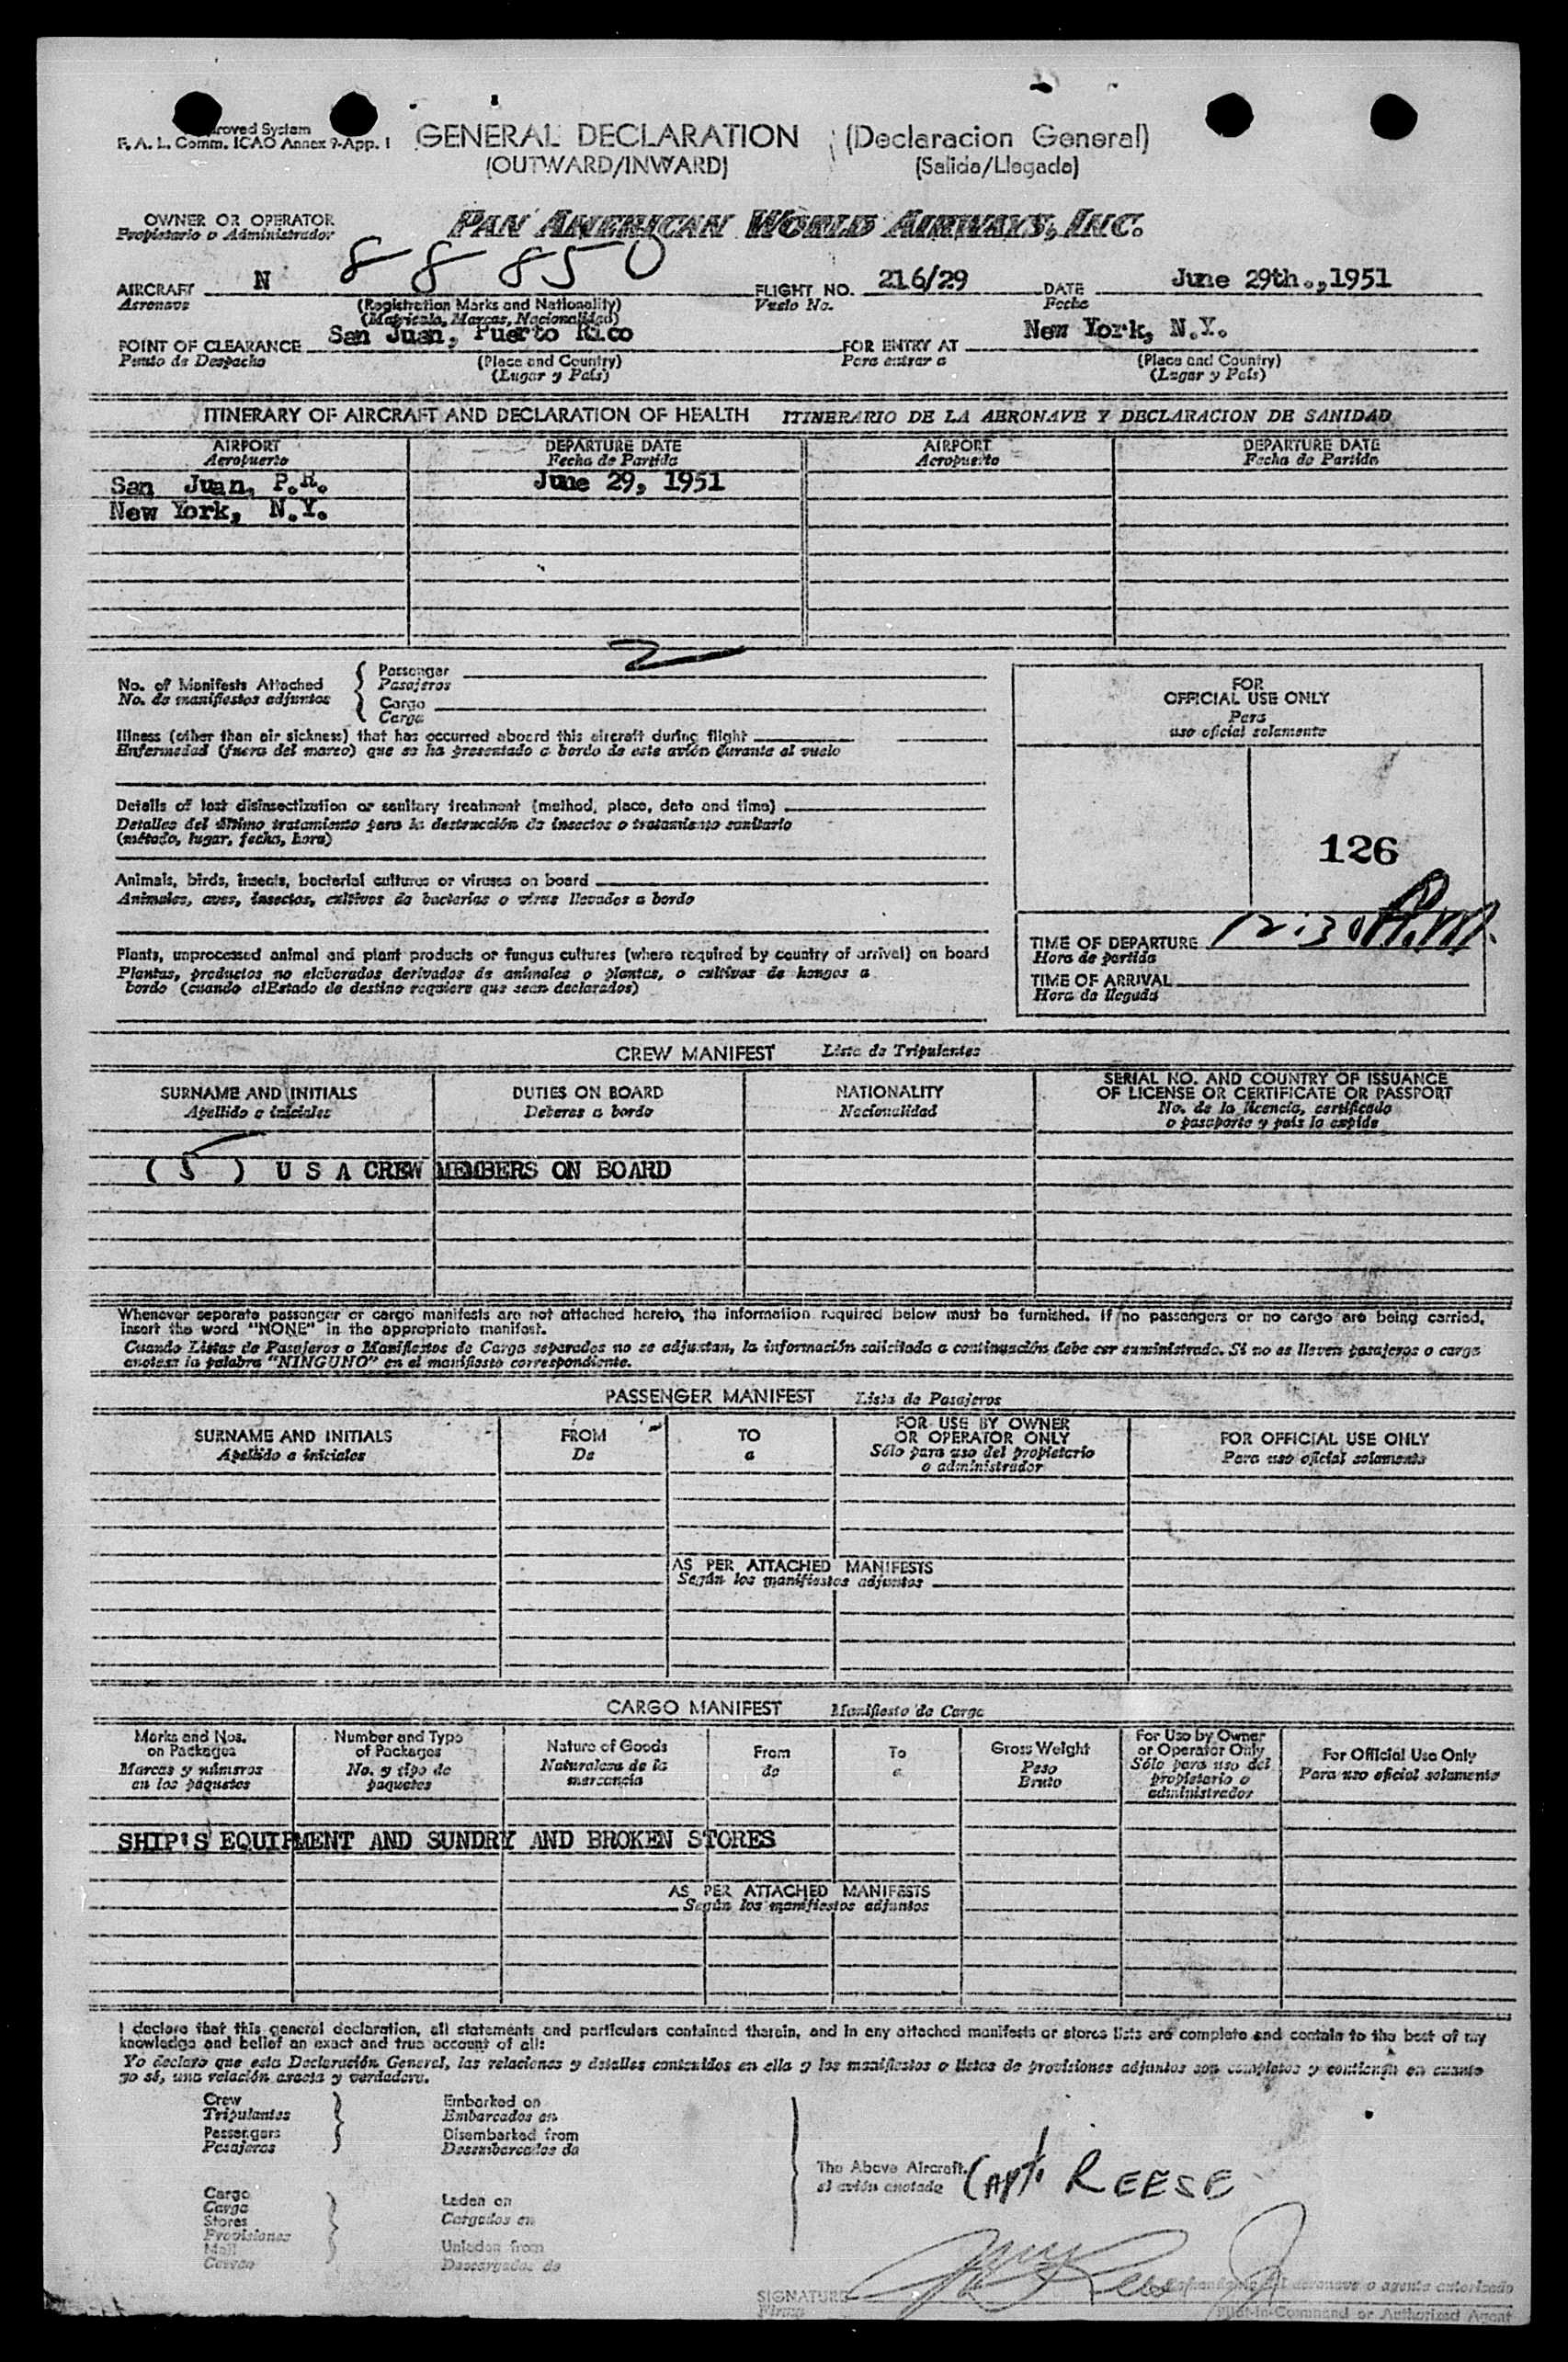 roved System
F. A. L. Comm. ICAO Annex 9-App. 1
GENERAL DECLARATION (Declaracion General)
(OUTWARD/INWARD) (Salida/Llegada)
OWNER OR OPERATOR
Propietario o Administrador
PAN AMERICAN WORLD AIRWAYS, INC.
AIRCRAFT N 88850 FLIGHT NO. 216/29 DATE June 29th.,1951
Aeronave (Registration Marks and Nationality) Vuelo No. Fecha
(Matricula, Marcas, Nacionalidad)
POINT OF CLEARANCE San Juan, Puerto Rico FOR ENTRY AT New York, N.Y.
Punto de Despacho (Place and Country) Para entrar a (Place and Country)
(Lugar y País) (Lugar y País)
ITINERARY OF AIRCRAFT AND DECLARATION OF HEALTH ITINERARIO DE LA AERONAVE Y DECLARACION DE SANIDAD
AIRPORT DEPARTURE DATE AIRPORT DEPARTURE DATE
Aeropuerto Fecha de Partida Aeropuerto Fecha de Partida
San Juan, P.R. June 29, 1951
New York, N.Y.
No. of Manifests Attached
No. de manifiestos adjuntos
Passenger 2
Pasajeros
Cargo
Carga
Illness (other than air sickness) that has occurred aboard this aircraft during flight
Enfermedad (fuera del mareo) que se ha presentado a bordo de este avión durante el vuelo
Details of last disinsectization or sanitary treatment (method, place, date and time)
Detalles del último tratamiento para la destrucción de insectos o tratamiento sanitario
(método, lugar, fecha, hora)
Animals, birds, insects, bacterial cultures or viruses on board
Animales, aves, insectos, cultivos de bacterias o virus llevados a bordo
Plants, unprocessed animal and plant products or fungus cultures (where required by country of arrival) on board
Plantas, productos no elaborados derivados de animales o plantas, o cultivos de hongos a
bordo (cuando elEstado de destino requiere que sean declarados)
FOR
OFFICIAL USE ONLY
Para
uso oficial solamente
126
TIME OF DEPARTURE 12:30 P.M.
Hora de partida
TIME OF ARRIVAL
Hora de llegada
CREW MANIFEST Lista de Tripulantes
SURNAME AND INITIALS DUTIES ON BOARD NATIONALITY SERIAL NO. AND COUNTRY OF ISSUANCE
Apellido e iniciales Deberes a bordo Nacionalidad OF LICENSE OR CERTIFICATE OR PASSPORT
No. de la licencia, certificado
o pasaporte y país lo expide
( 5 ) U S A CREW MEMBERS ON BOARD
Whenever separate passenger or cargo manifests are not attached hereto, the information required below must be furnished. If no passengers or no cargo are being carried,
insert the word "NONE" in the appropriate manifest.
Cuando Listas de Pasajeros o Manifiestos de Carga separados no se adjuntan, la información solicitada a continuación debe ser suministrada. Si no se lleven pasajeros o carga
anótese la palabra "NINGUNO" en el manifiesto correspondiente.
PASSENGER MANIFEST Lista de Pasajeros
SURNAME AND INITIALS FROM TO FOR USE BY OWNER FOR OFFICIAL USE ONLY
Apellido e iniciales De a OR OPERATOR ONLY Para uso oficial solamente
Sólo para uso del propietario
o administrador
AS PER ATTACHED MANIFESTS
Según los manifiestos adjuntos
CARGO MANIFEST Manifiesto de Carga
Marks and Nos.
on Packages
Marcas y números
en los paquetes
Number and Type
of Packages
No. y tipo de
paquetes
Nature of Goods
Naturaleza de la
mercancía
From
de
To
a
Gross Weight
Peso
Bruto
For Use by Owner
or Operator Only
Sólo para uso del
propietario o
administrador
For Official Use Only
Para uso oficial solamente
SHIP'S EQUIPMENT AND SUNDRY AND BROKEN STORES
AS PER ATTACHED MANIFESTS
Según los manifiestos adjuntos
I declare that this general declaration, all statements and particulars contained therein, and in any attached manifests or stores lists are complete and contain to the best of my
knowledge and belief an exact and true account of all:
Yo declaro que esta Declaración General, las relaciones y detalles contenidos en ella y los manifiestos o listas de provisiones adjuntos son completos y contienen en cuanto
yo sé, una relación exacta y verdadera.
Crew Embarked on
Tripulantes Embarcados en
Passengers Disembarked from
Pasajeros Desembarcados de
The Above Aircraft. Capt. REESE
el avión anotado
Cargo Laden on
Carga Cargados en
Stores
Provisiones
Mail Unladen from
Correo Descargados de
SIGNATURE aeronave o agente autorizado
Firma Pilot-in-Command or Authorized Agent